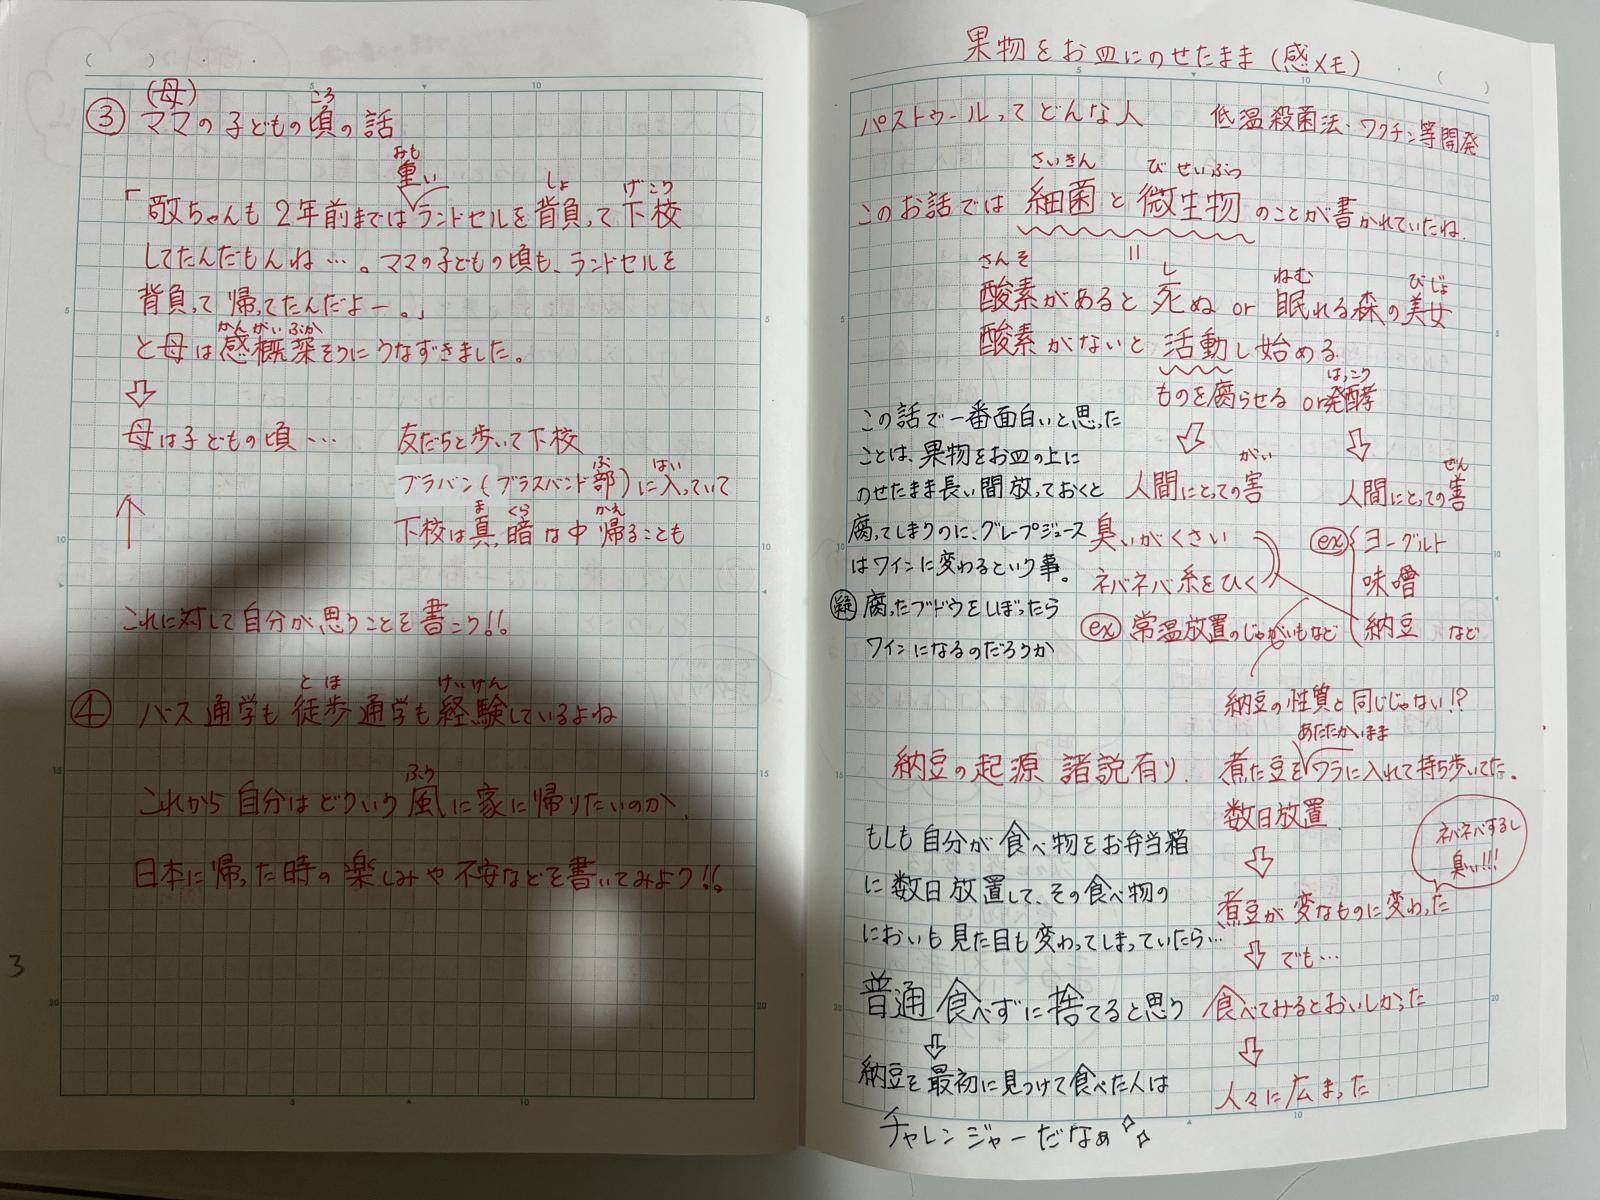 (母)
③ ママの子どもの頃の話
ころ
おも
重い
しょ
げこう
「敬ちゃんも2年前まではランドセルを背負って下校
してたんだもんね…。ママの子どもの頃も、ランドセルを
背負って帰ってたんだよー。」
かんがいぶか
と母は感概深そうにうなずきました。
母は子どもの頃… 友だちと歩いて下校
ぶ はい
ブラバン(ブラスバンド部)に入っていて
ま くら かえ
下校は真暗な中帰ることも
これに対して自分が思うことを書こう!!
とほ けいけん
④ バス通学も徒歩通学も経験しているよね
ふう
これから自分はどういう風に家に帰りたいのか、
日本に帰った時の楽しみや不安などを書いてみよう!!
3
果物をお皿にのせたまま(感メモ)
パストゥールってどんな人 低温殺菌法・ワクチン等開発
さいきん びせいぶつ
このお話では細菌と微生物のことが書かれていたね。
さんそ し ねむ びじょ
酸素があると死ぬ or 眠れる森の美女
酸素がないと活動し始める
はっこう
ものを腐らせる or 発酵
がい ぜん
人間にとっての害 人間にとっての善
臭いがくさい
ネバネバ糸をひく
ex 常温放置のじゃがいもなど
ex ヨーグルト
味噌
納豆 など
納豆の性質と同じじゃない!?
この話で一番面白いと思った
ことは、果物をお皿の上に
のせたまま長い間放っておくと
腐ってしまうのに、グレープジュース
はワインに変わるという事。
疑 腐ったブドウをしぼったら
ワインになるのだろうか
あたたかいまま
納豆の起源 諸説有り、 煮た豆をワラに入れて持ち歩いてた。
数日放置
ネバネバするし
臭い!!!
煮豆が変なものに変わった
でも…
食べてみるとおいしかった
人々に広まった
もしも自分が食べ物をお弁当箱
に数日放置して、その食べ物の
においも見た目も変わってしまっていたら…
普通食べずに捨てると思う
納豆を最初に見つけて食べた人は
チャレンジャーだなぁ